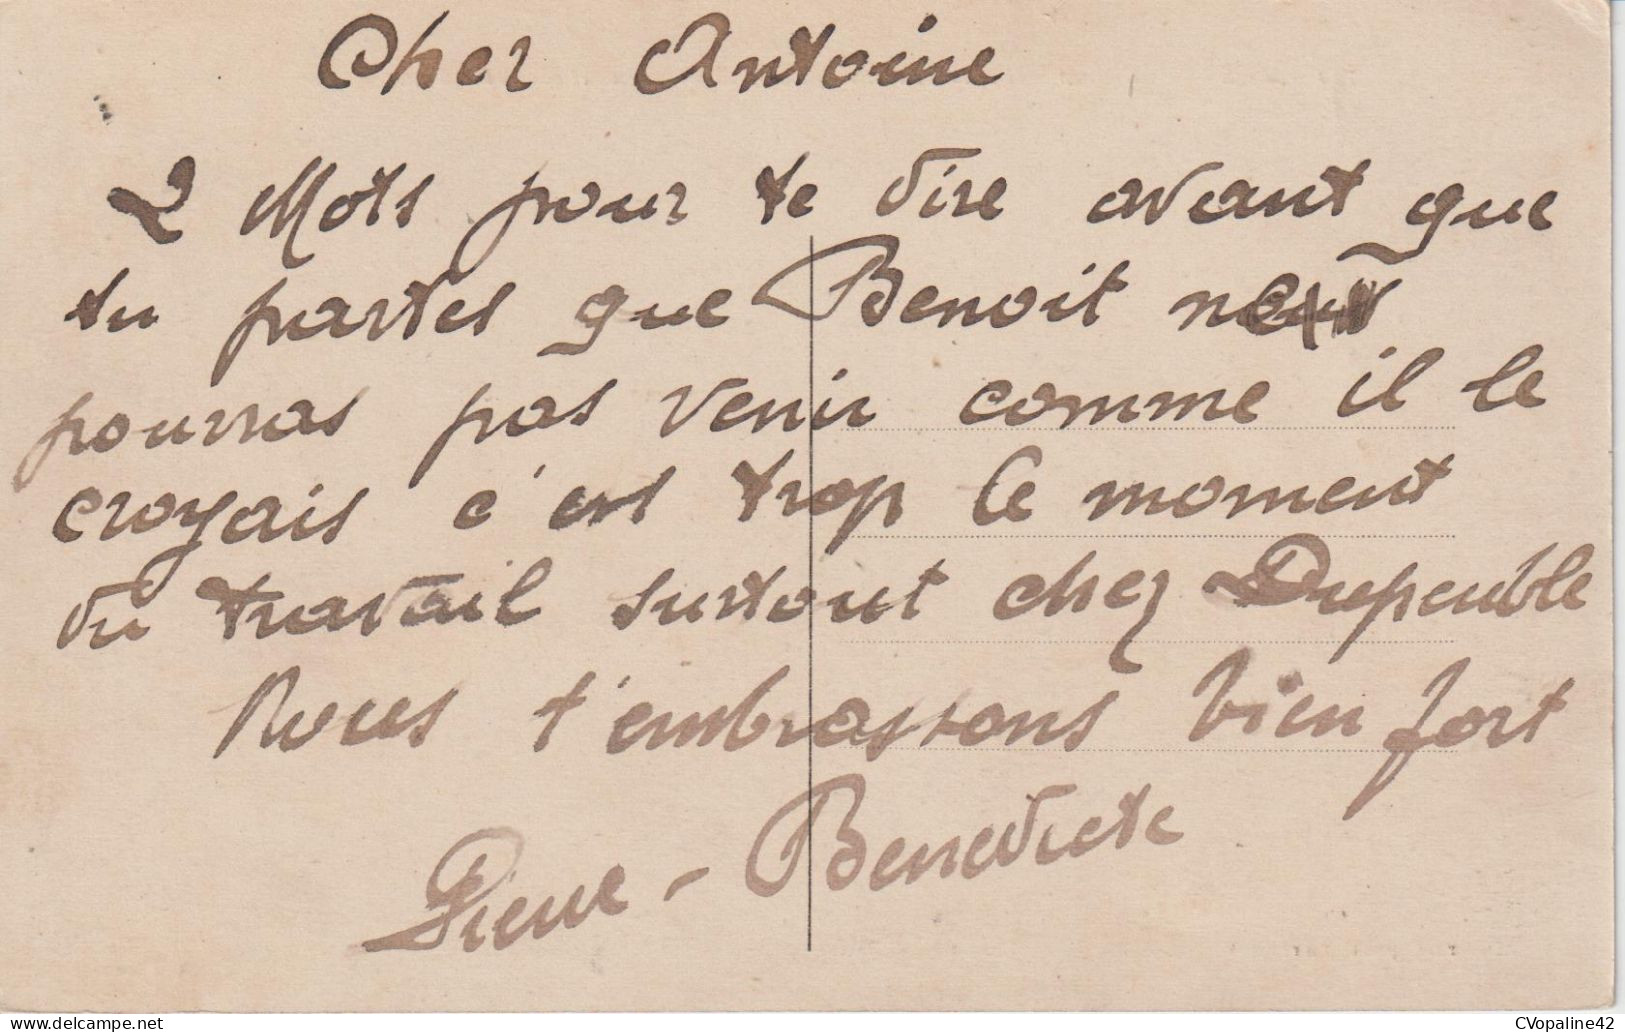 Cher Antoine
2 Mots pour te dire avant que
tu partes que Benoit ne
pourras pas venir comme il le
croyais c'est trop le moment
du travail surtout chez Dupeuble
Nous t'embrassons bien fort
Pierre - Benedicte
CVopaline42